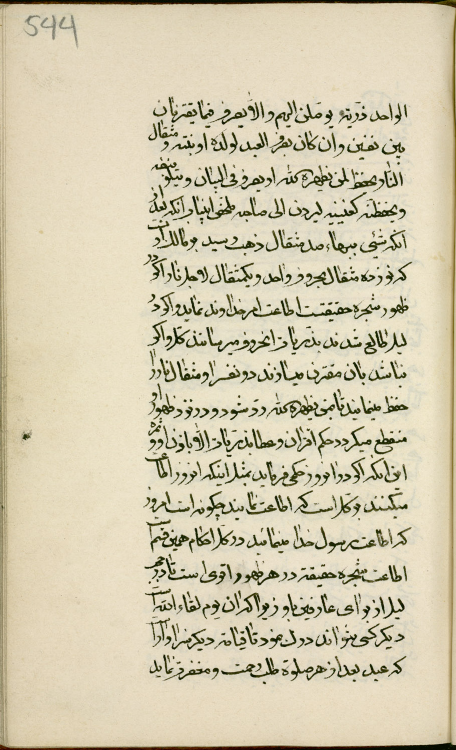 544
الواحد ذریة یوصلن الیهم والا یعرف فیما یقترنان
بین نفسین وان کان یعرف العبد لولده او بنته و مثقال
النار یحفظ لمن یظهره الله او یعرف فی البیان
و یحفظنه کعینیه لیردن الی صاحبه
آنکه شیئی ببهاء صد مثقال ذهب رسید بر مالک او
که نوزده مثقال بحروف واحد و یکمثقال لاحد نار اگر
ظهور شجره حقیقتست اطاعت امر خداوند نماید و اگر در
لیل طالع شدند بذریات آنحروف میرسانند کل و اگر
نباشد بآن مقترن میسازند دو نفس را و مثقال نار را
حفظ مینمایند تا بمن یظهره الله رد شود و در نزد ظهور او
منقطع میگردد حکم اقتران و عطا بذریات الا باذن او و ثمره
این آنکه اگر در آنروز حکمی فرماید بمثل اینکه امروز اطاعت
میکنند بر کل است که اطاعت نمایند چگونه است امروز
که اطاعت رسول خدا مینمائید در کل احکام همین قسم است
اطاعت شجره حقیقت در هر ظهور و اقوی است
لیل از برای عارفین باو زیرا که آن یوم لقاء الله است
دیگر کسی نتواند درک نمود تا قیامة دیگر سزاوار است
که عبد بعد از هر صلوة طلب رحمت و مغفرت نماید